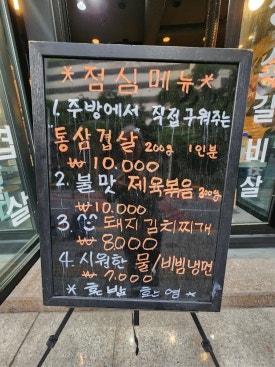 *점심메뉴*
1. 주방에서 직접구워주는
통삼겹살 200g 1인분
₩10.000
2. 불맛 제육볶음 200g
₩10.000
3. 돼지김치찌개
₩8000
4. 시원한 물/비빔냉면
₩7.000
*혼밥 환영*
갈비살